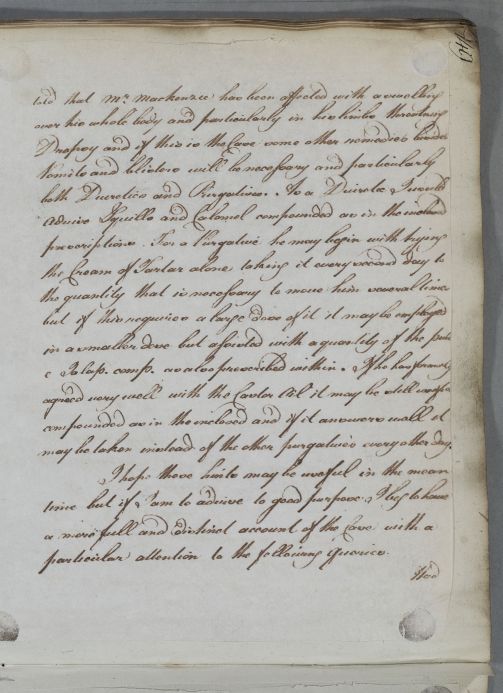 told that Mr. Mackenzie has been affected with a swelling
over his whole body and particularly in his limbs threatning
Dropsy and if this is the Case some other remedies besides
Vomits and blisters will be necessary and particularly
both Diuretics and Purgatives. As a Diuretic I would
advise Squills and Calomel compounded as in the inclosed
prescriptions. For a Purgative he may begin with trying
the Cream of Tartar alone taking it every second day to
the quantity that is necessary to move him several times
but if this requires a large dose of it it may be employed
in a smaller dose but assisted with a quantity of the pulv:
e Jalap. comp. as also prescribed within. If he has formerly
agreed very well with the Castor Oil it may be still
compounded as in the inclosed and if it answers well it
may be taken instead of the other purgatives every other day.
I hope these hints may be useful in the mean
time but if I am to advise to good purpose I beg to have
a more full and distinct account of the Case with a
particular attention to the following Queries.